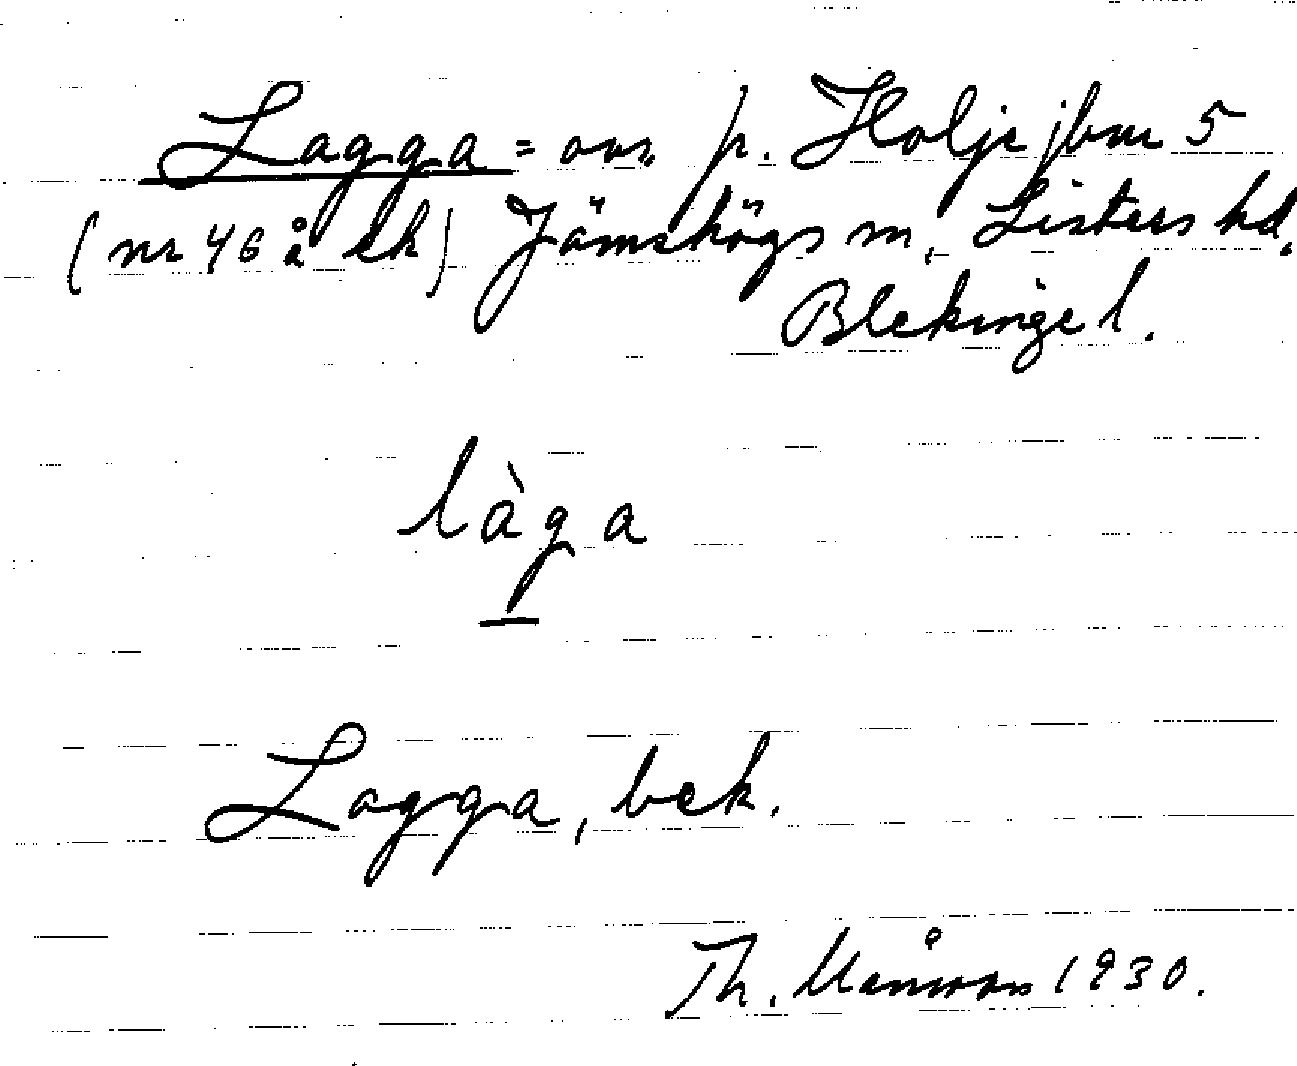 Lagga = ovs. p. Holje jbm 5
(nr 46 å ek) Jämshögs sn, Listers hd.
Blekinge l.
làga
Lagga, bek.
Th. Månsson 1930.